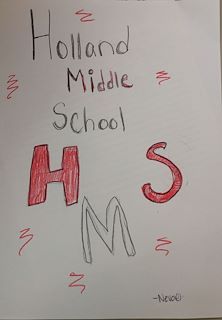 Holland
Middle
School
H S
M